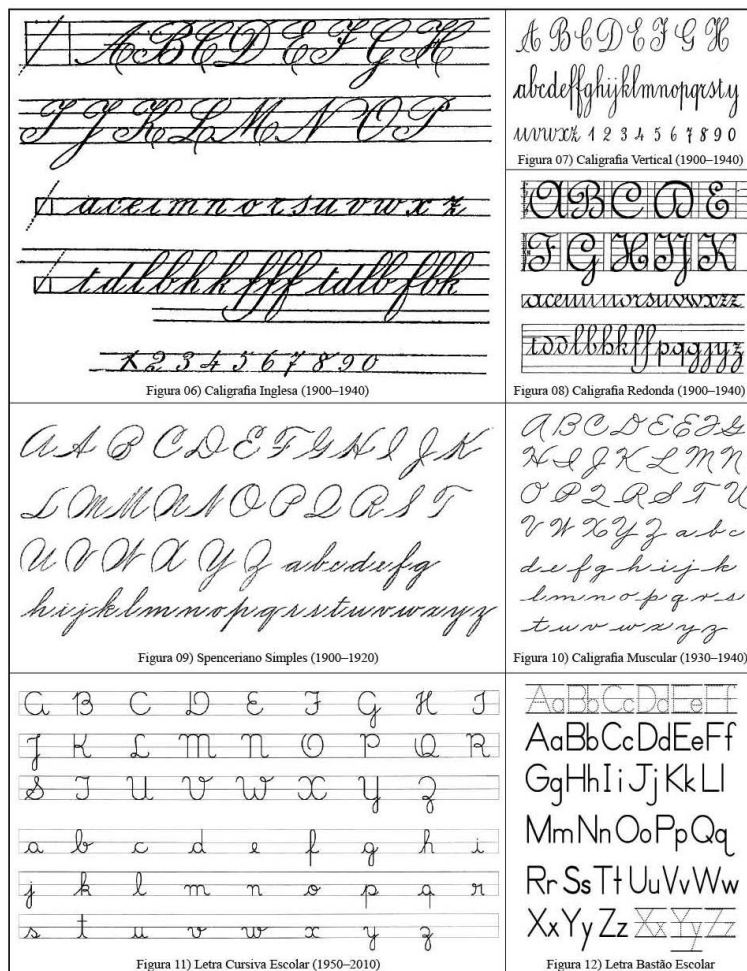 A B C D E F G H
I J K L M N O P
a c e i m n o r s u v w x z
t d l b h k f f f t d l b f b k
1 2 3 4 5 6 7 8 9 0
Figura 06) Caligrafia Inglesa (1900–1940)
A B C D E F G H
abcdeffghijklmnopqrsty
uvwxz 1 2 3 4 5 6 7 8 9 0
Figura 07) Caligrafia Vertical (1900–1940)
A B C D E
F G H I J K
aceimnorsuvwxzz
tddlbhkffpqgjyz
Figura 08) Caligrafia Redonda (1900–1940)
A A B C D E F G H I J K
L M M N N O P Q R S T
U V W X Y Z abcdefg
hijklmnopqrsstuvwxyz
Figura 09) Spenceriano Simples (1900–1920)
A B C D E E F G
H I J K L M N
O P Q R S T U
V W X Y Z a b c
d e f g h i j k
l m n o p q r s
t u v w x y z
Figura 10) Caligrafia Muscular (1930–1940)
A B C D E F G H I
J K L M N O P Q R
S T U V W X Y Z
a b c d e f g h i
j k l m n o p q r
s t u v w x y z
Figura 11) Letra Cursiva Escolar (1950–2010)
AaBbCcDdEeFf
AaBbCcDdEeFf
GgHhIiJjKkLl
MmNnOoPpQq
RrSsTtUuVvWw
XxYyZz XxYyZz
Figura 12) Letra Bastão Escolar